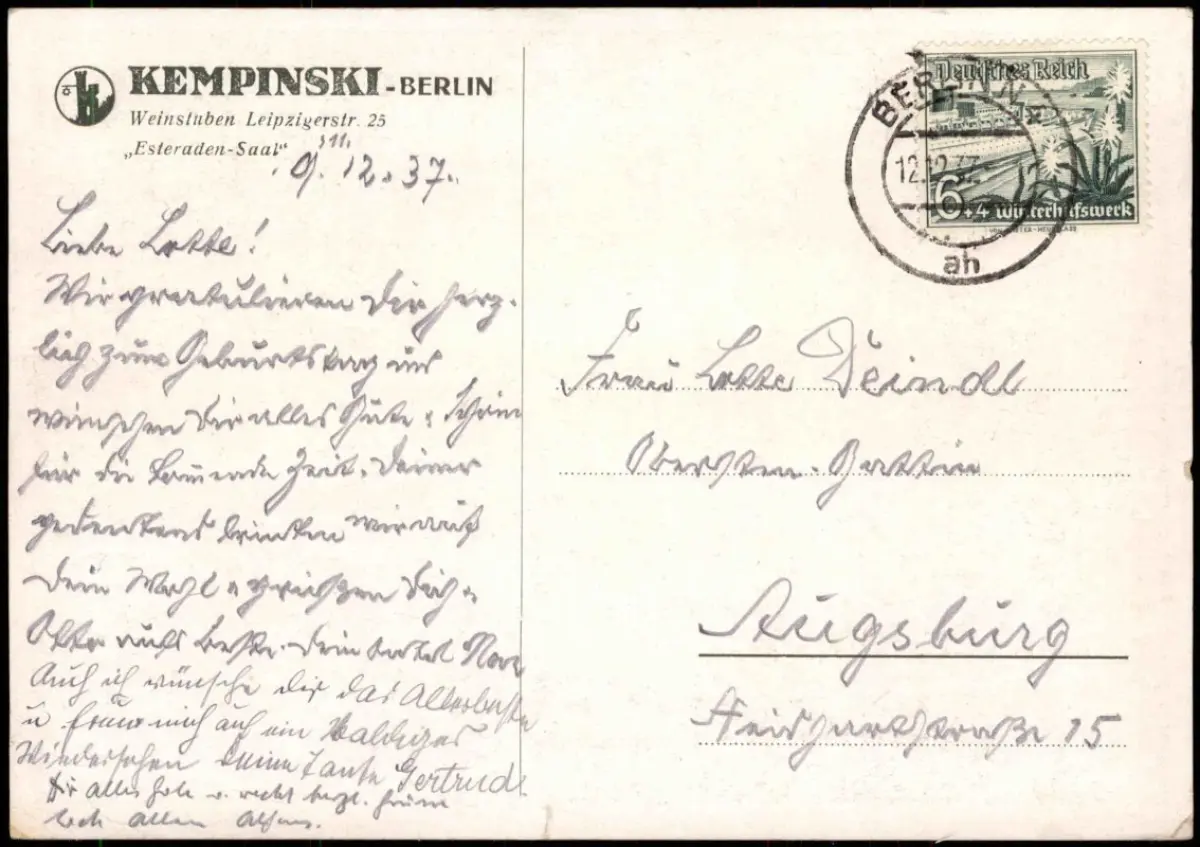 KEMPINSKI-BERLIN
Weinstuben Leipzigerstr. 25
„Esteraden-Saal"
9.12.37.
Liebe Lotte!
Wir gratulieren Dir herz-
lich zum Geburtstag und
wünschen Dir alles Gute u. Schöne
für die kommende Zeit. Deiner
gedenkend trinken wir auf
Dein Wohl u. grüßen Dich u.
Otto aufs Beste. Dein Onkel
Auch ich wünsche dir das Allerbeste
u freue mich auf ein baldiges
Wiedersehen Deine Tante Gertrud.
Dir alles u. recht herzl.
Alfons.
Deutsches Reich
6+4 Winterhilfswerk
BERLIN N
12.12.37
ah
Frau Lotte Deindl
Obersten-Gattin
Augsburg
Neidhartstraße 15